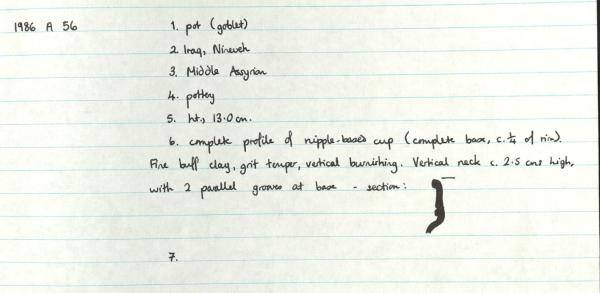 1986 A 56
1. pot (goblet)
2. Iraq, Nineveh
3. Middle Assyrian
4. pottery
5. ht., 13.0 cm.
6. complete profile of nipple-based cup (complete base, c. ¼ of rim).
Fine buff clay, grit temper, vertical burnishing. Vertical neck c. 2.5 cms high,
with 2 parallel grooves at base - section:
7.